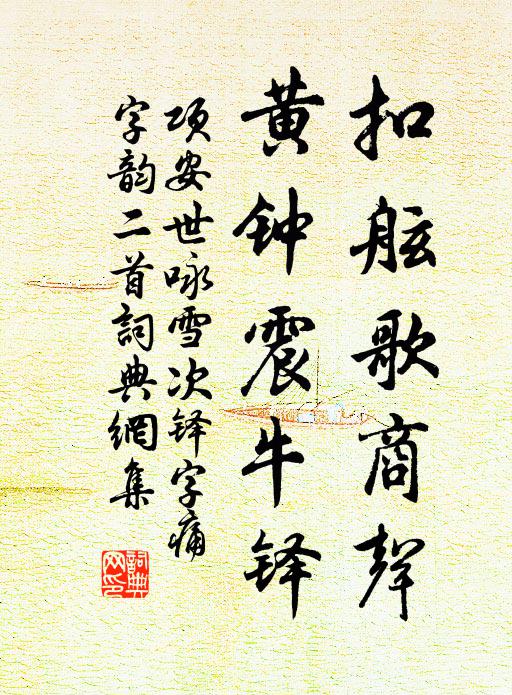 扣舷歌商聲
黄钟震牛铎
项安世咏雪次铎字痛
字韵二首詞典網集
詞典
网印